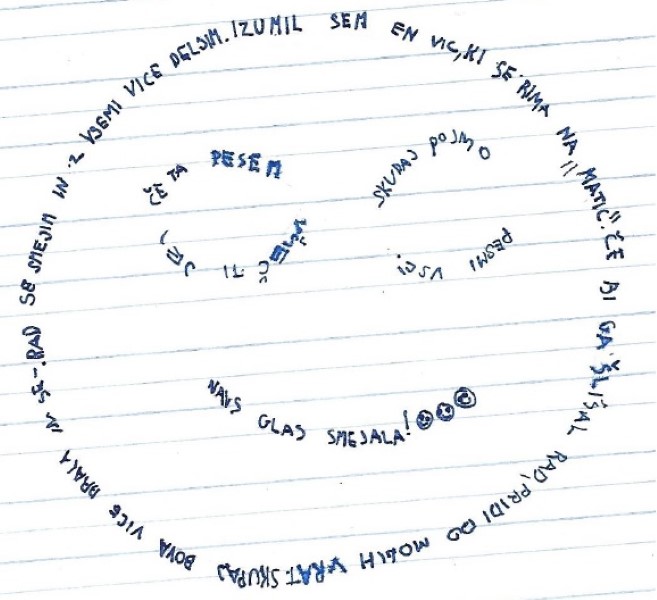 RAD SE SMEJIM IN Z VSEMI VICE DELJIM. IZUMIL SEM EN VIC, KI SE RIMA NA "MATIC". ČE BI GA ŠLIŠAL RAD, PRIDI DO MOJIH VRAT. SKUPAJ BOVA VICE BRALA IN SE -.
ČE TA PESEM
VŠEČ TI JE,
SKUPAJ POJMO
PESMI VSI.
NAVS GLAS SMEJALA!